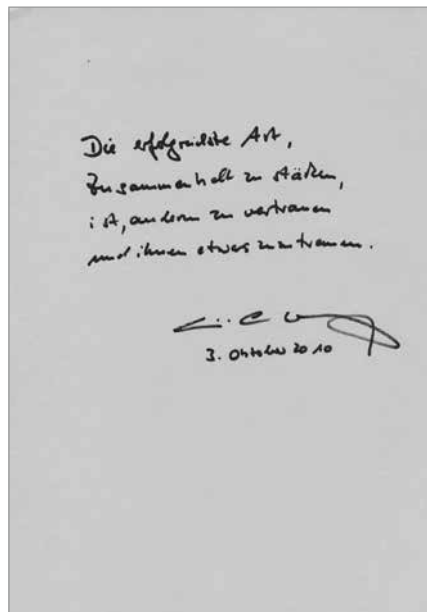 Die erfolgreichste Art,
Zusammenhalt zu stärken,
ist, anderen zu vertrauen
und ihnen etwas zuzutrauen.
3. Oktober 2010